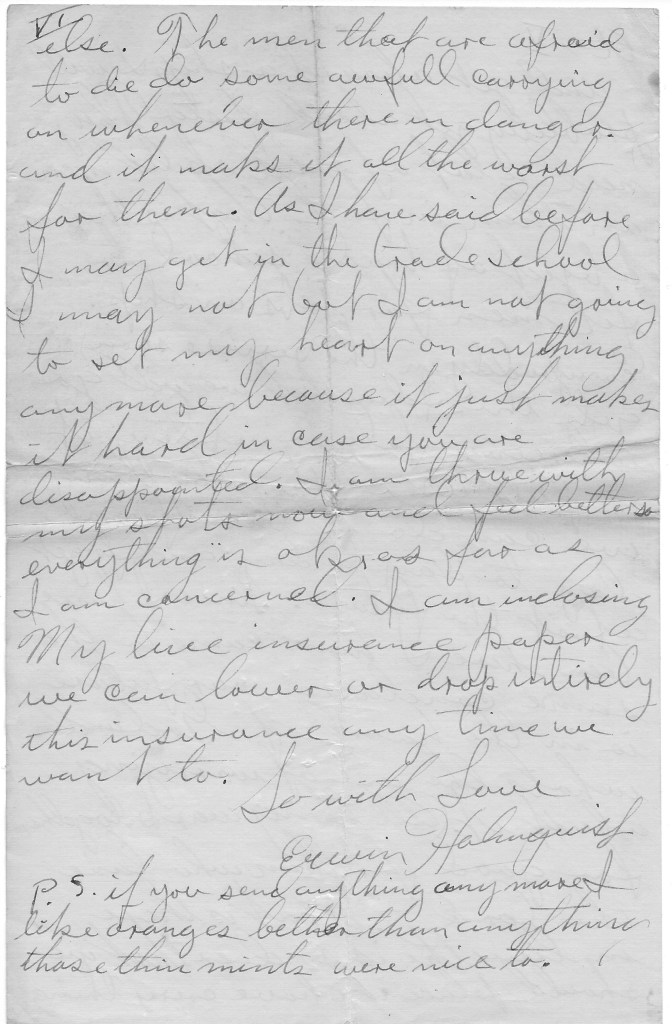 VI
else. The men that are afraid
to die do some awfull carrying
on whenever there in danger.
and it maks it all the worst
for them. As I have said before
I may get in the trade school
I may not but I am not going
to set my heart on anything
anymore because it just makes
it hard in case you are
disappointed. I am thrue with
my shots now and feel better so
everything is ok as far as
I am concerned. I am inclosing
My live insurance paper
we can lower or drop intirely
this insurance any time we
want to.
So with Love
Erwin Holmquist
P.S. if you send anything any more I
like oranges better than anything
those thin mints were nice to.